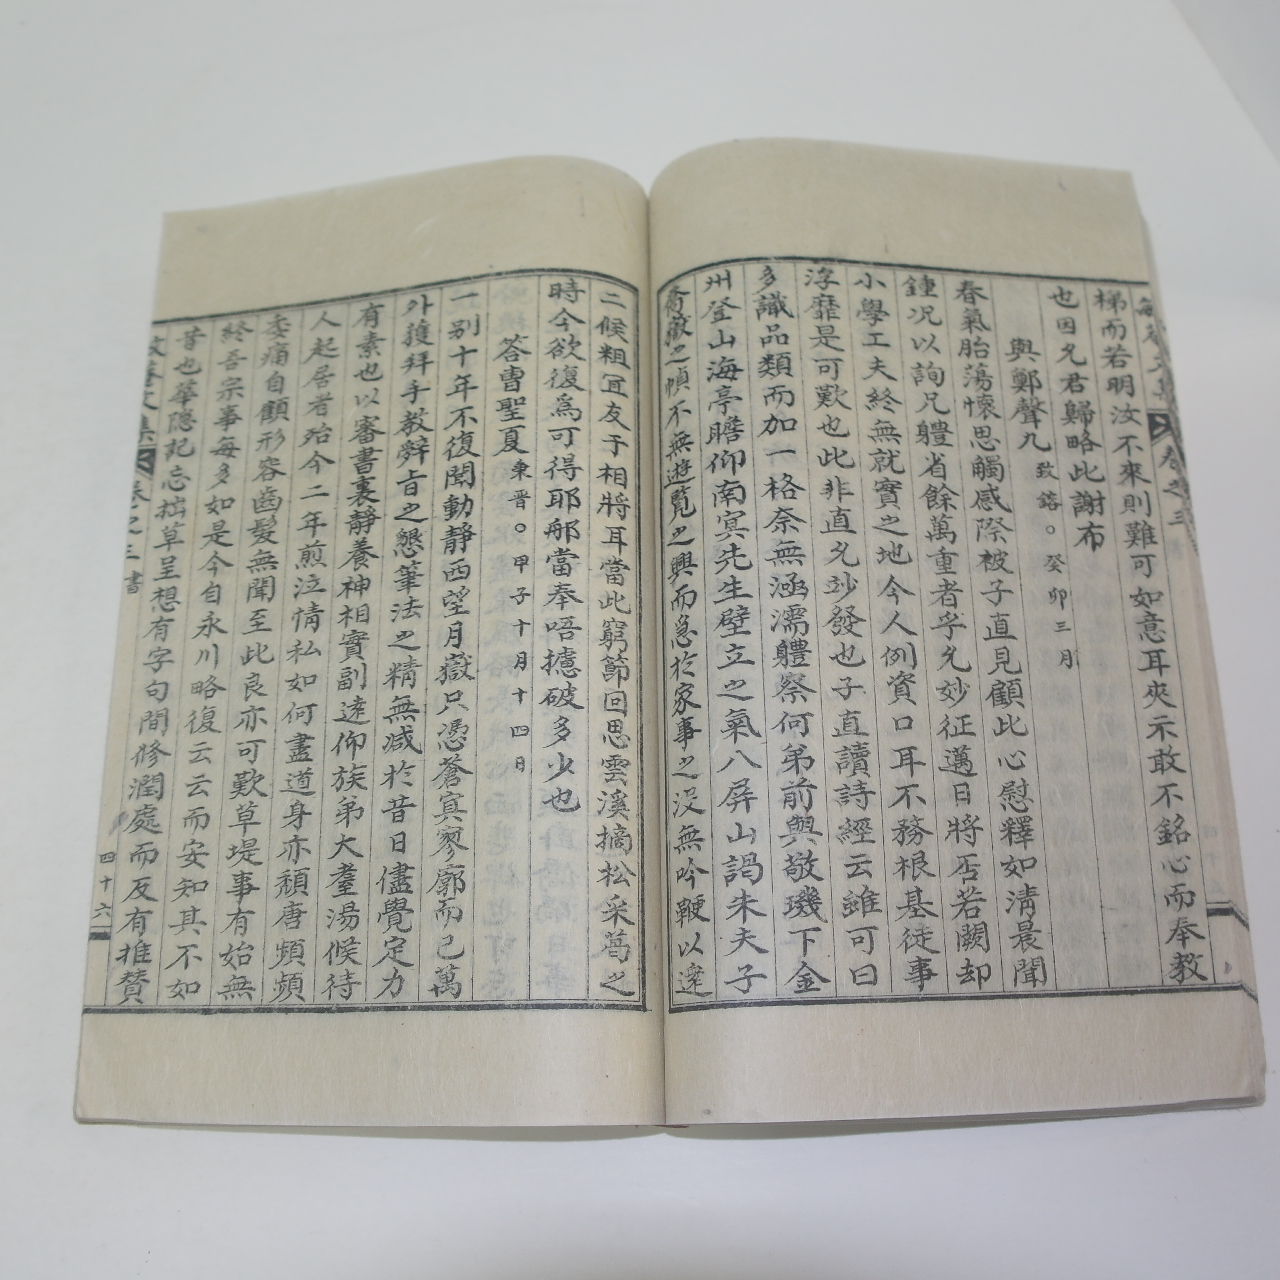 梯而若明汝不來則難可如意耳夾示敢不銘心而奉教
也因兄君歸略此謝布
與鄭聲九 致鎔○癸卯三月
春氣胎蕩懷思觸感際被子直見顧此心慰釋如淸晨聞
鍾况以詢兄軆省餘萬重者乎兄妙征邁日將否若闕却
小學工夫終無就實之地今人例資口耳不務根基徒事
浮靡是可歎也此非直兄玅發也子直讀詩經云雖可曰
多識品類而加一格奈無涵濡軆察何弟前與敬璣下金
州登山海亭瞻仰南冥先生壁立之氣八屛山謁朱夫子
喬嶽之幀不無遊覧之興而急於家事之沒無吟鞭以達
二候粗冝友于相將耳當此窮節回思雲溪摘松采蔦之
時今欲復爲可得耶郍當奉唔攄破多少也
答曺聖夏 秉晋○甲子十月十四日
一別十年不復聞動靜西望月嶽只憑蒼寞寥廓而已萬
外獲拜手教辭旨之懇筆法之精無减於昔日儘覺定力
有素也以審書裏靜養神相實副遠仰族弟大耋湯候待
人起居者殆今二年煎泣情私如何盡道身亦頹唐頻頻
委痛自顧形容齒髮無聞至此良亦可歎草堤事有始無
終吾宗事每多如是今自永川略復云云而安知其不如
昔也華隱記忘拙草呈想有字句間修潤處而反有推贊
文集 卷之三 書 四十六